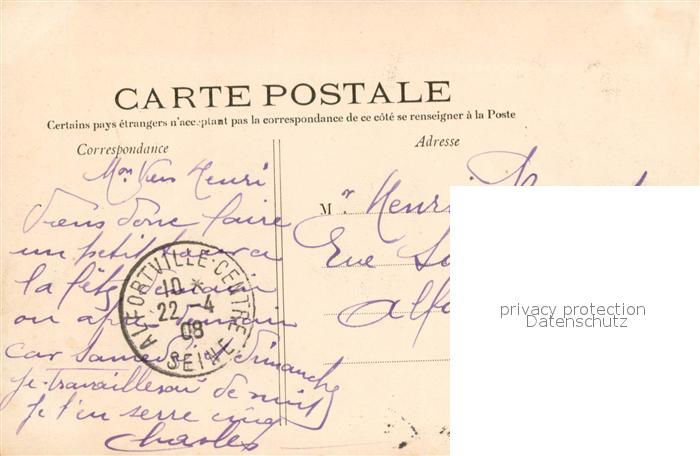 CARTE POSTALE
Certains pays étrangers n'acceptant pas la correspondance de ce côté se renseigner à la Poste
Correspondance
Adresse
Mon Vieux Henri
Viens donc faire
un petit tour a
la fête demain
ou après demain
car Samedi et dimanche
je travaillerai de nuit
Je t'en serre cinq
Charles
Mr Henri
Rue
Alfo
ALFORTVILLE-CENTRE
10 *
22-4
08
SEINE
privacy protection
Datenschutz